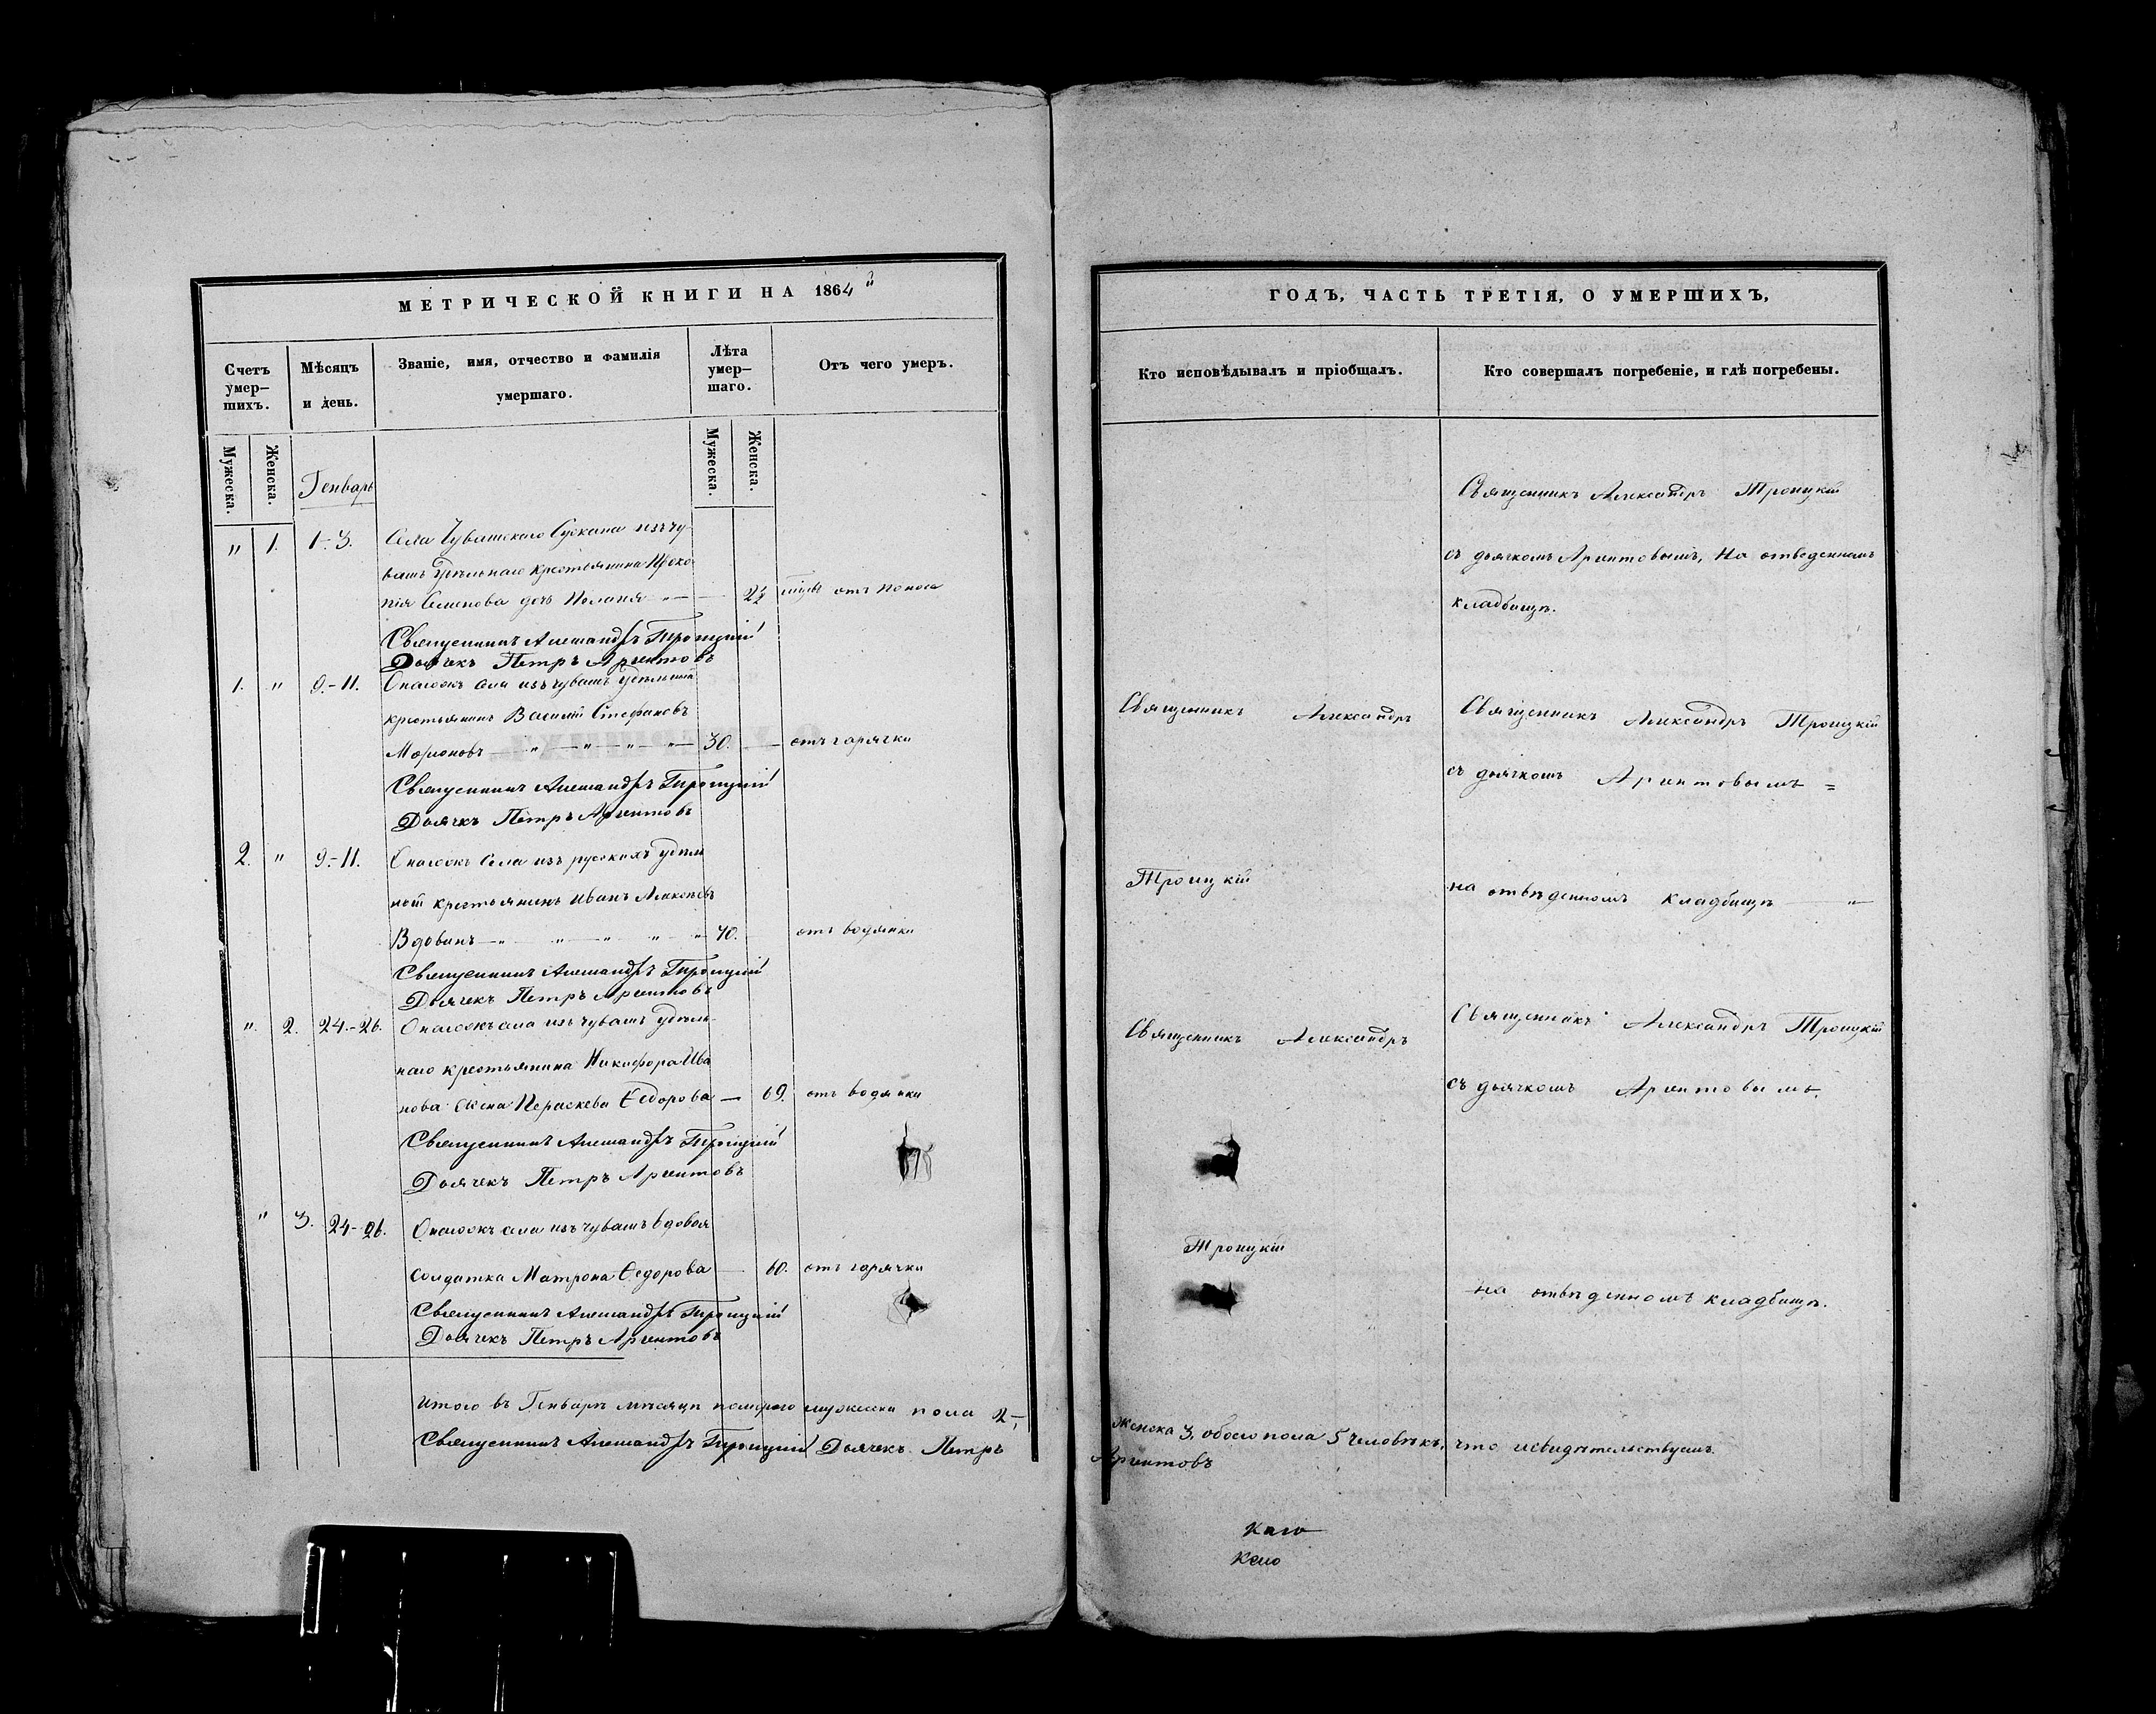 МЕТРИЧЕСКОЙ КНИГИ НА 1864й
Счетъ умер-шихъ.
Мѣсяцъ и день.
Званіе, имя, отчество и фамилія умершаго.
Лѣта умер-шаго.
Отъ чего умеръ.
Мужеска.
Женска.
Мужеска.
Женска.
Генварь
" 1. 1-3. Села Чувашскаго Сускана изъ чу-
вашъ удѣльнаго крестьянина Проко-
пія Семенова дочь 2½ отъ поноса
Священникъ Александръ Троицкій
Дьячекъ Петръ Аристовъ
1. " 9.-11. Онагожъ села изъ чувашъ удѣльный
крестьянинъ Василій Стефановъ
30. отъ горячки
Священникъ Александръ Троицкій
Дьячекъ Петръ Аристовъ
2. " 9.-11. Онагожъ села изъ русскихъ удѣль
ный крестьянинъ Иванъ Алексѣевъ
Вдовинъ 40. отъ водянки
Священникъ Александръ Троицкій
Дьячекъ Петръ Аристовъ
". 2. 24.-26. Онагожъ села изъ чувашъ удѣль-
наго крестьянина Никифора Ива
нова жена Параскева Ѳедорова 69. отъ водянки
Священникъ Александръ Троицкій
Дьячекъ Петръ Аристовъ
" 3. 24-26. Онагожъ села изъ чувашъ вдовая
солдатка Матрона Ѳедорова 60. отъ горячки
Священникъ Александръ Троицкій
Дьячекъ Петръ Аристовъ
Итого въ Генварѣ мѣсяцѣ померло мужеска пола 2,
Священникъ Александръ Троицкій Дьячекъ Петръ
ГОДЪ, ЧАСТЬ ТРЕТІЯ, О УМЕРШИХЪ,
Кто исповѣдывалъ и пріобщалъ.
Кто совершалъ погребеніе, и гдѣ погребены.
Священникъ Александръ Троицкій
съ дьячкомъ Аристовымъ, на отведенномъ
кладбищѣ.
Священникъ Александръ
Священникъ Александръ Троицкій
съ дьячкомъ Аристовымъ =
Троицкій
на отвѣденномъ кладбищѣ
Священникъ Александръ
Священникъ Александръ Троицкій
съ дьячкомъ Аристовымъ.
Троицкій
на отвѣденномъ кладбищѣ.
женска 3, обоего пола 5 человѣкъ, что и свидѣтельствуемъ.
Аристовъ